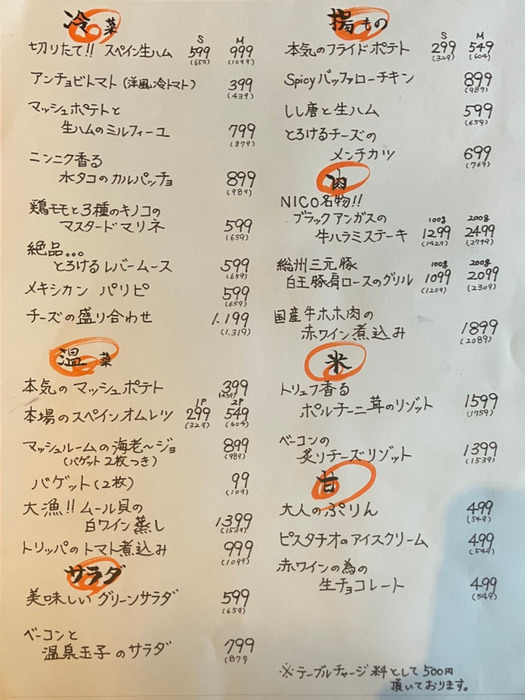 冷菜
S M
切りたて!! スペイン生ハム 599 999
(659) (1099)
アンチョビトマト (洋風冷トマト) 399
(439)
マッシュポテトと
生ハムのミルフィーユ 799
(879)
ニンニク香る
水タコのカルパッチョ 899
(989)
鶏モモと3種のキノコの
マスタードマリネ 599
(659)
絶品...
とろけるレバームース 599
(659)
メキシカン パリピ 599
(659)
チーズの盛り合わせ 1.199
(1.319)
温菜
本気の マッシュポテト 399
(439)
1P 2P
本場のスペインオムレツ 299 549
(329) (604)
マッシュルームの海老〜ジョ 899
(バゲット 2枚つき) (989)
バゲット(2枚) 99
(109)
大漁!! ムール貝の
白ワイン蒸し 1399
(1539)
トリッパのトマト煮込み 999
(1099)
サラダ
美味しい グリーンサラダ 599
(659)
ベーコンと
温泉玉子のサラダ 799
(879
揚もの
S M
本気のフライドポテト 299 549
(329) (604)
Spicyバッファローチキン 899
(989)
しし唐と生ハム 599
(659)
とろけるチーズの
メンチカツ 699
(769)
肉
NICO名物!!
ブラックアンガスの 100g 200g
牛ハラミステーキ 1299 2499
(1429) (2749)
総州三元豚 100g 200g
白王豚肩ロースのグリル 1099 2099
(1209) (2309)
国産牛ホホ肉の
赤ワイン煮込み 1899
(2089)
米
トリュフ香る
ポルチーニ茸のリゾット 1599
(1759)
ベーコンの
炙りチーズリゾット 1399
(1539)
甘
大人のぷりん 499
(549)
ピスタチオのアイスクリーム 499
(549)
赤ワインの為の
生チョコレート 499
(549)
※テーブルチャージ料として500円
頂いております。